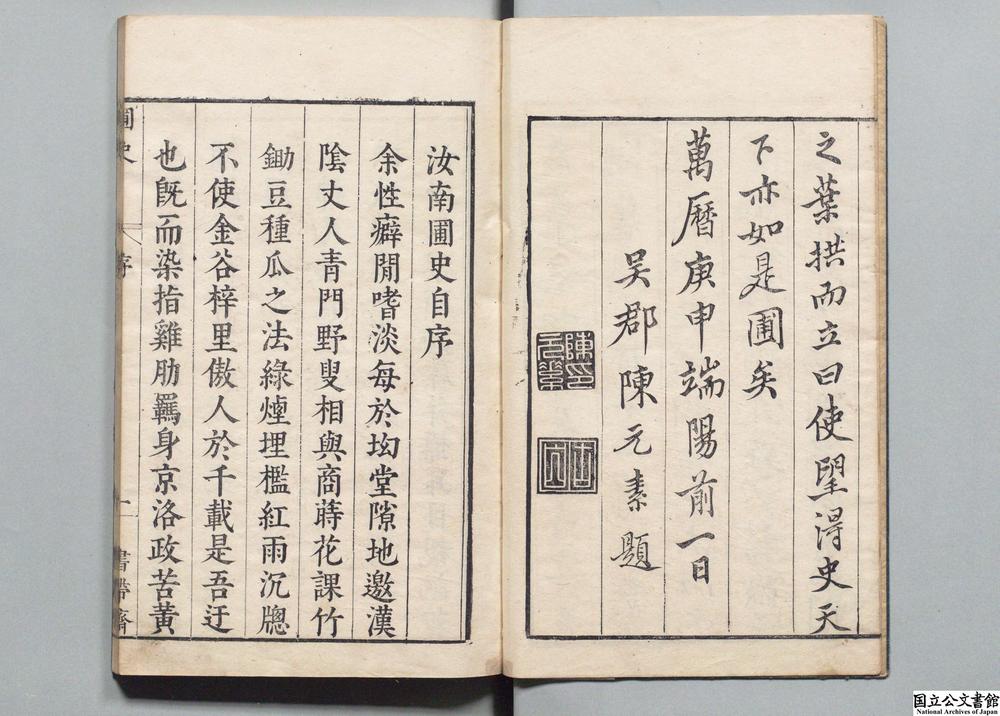 之葉拱而立曰使望得史天
下亦如是圃矣
萬曆庚申端陽前一日
吴郡陳元素題
汝南圃史自序
余性癖閒嗜淡每於坳堂隙地邀漢
陰丈人青門野叟相與商蒔花課竹
鋤豆種瓜之法綠煙埋檻紅雨沉牕
不使金谷梓里傲人於千載是吾迂
也旣而染指雞肋羈身京洛政苦黃
圃史
序
一
書帶齋
国立公文書館
National Archives of Japan